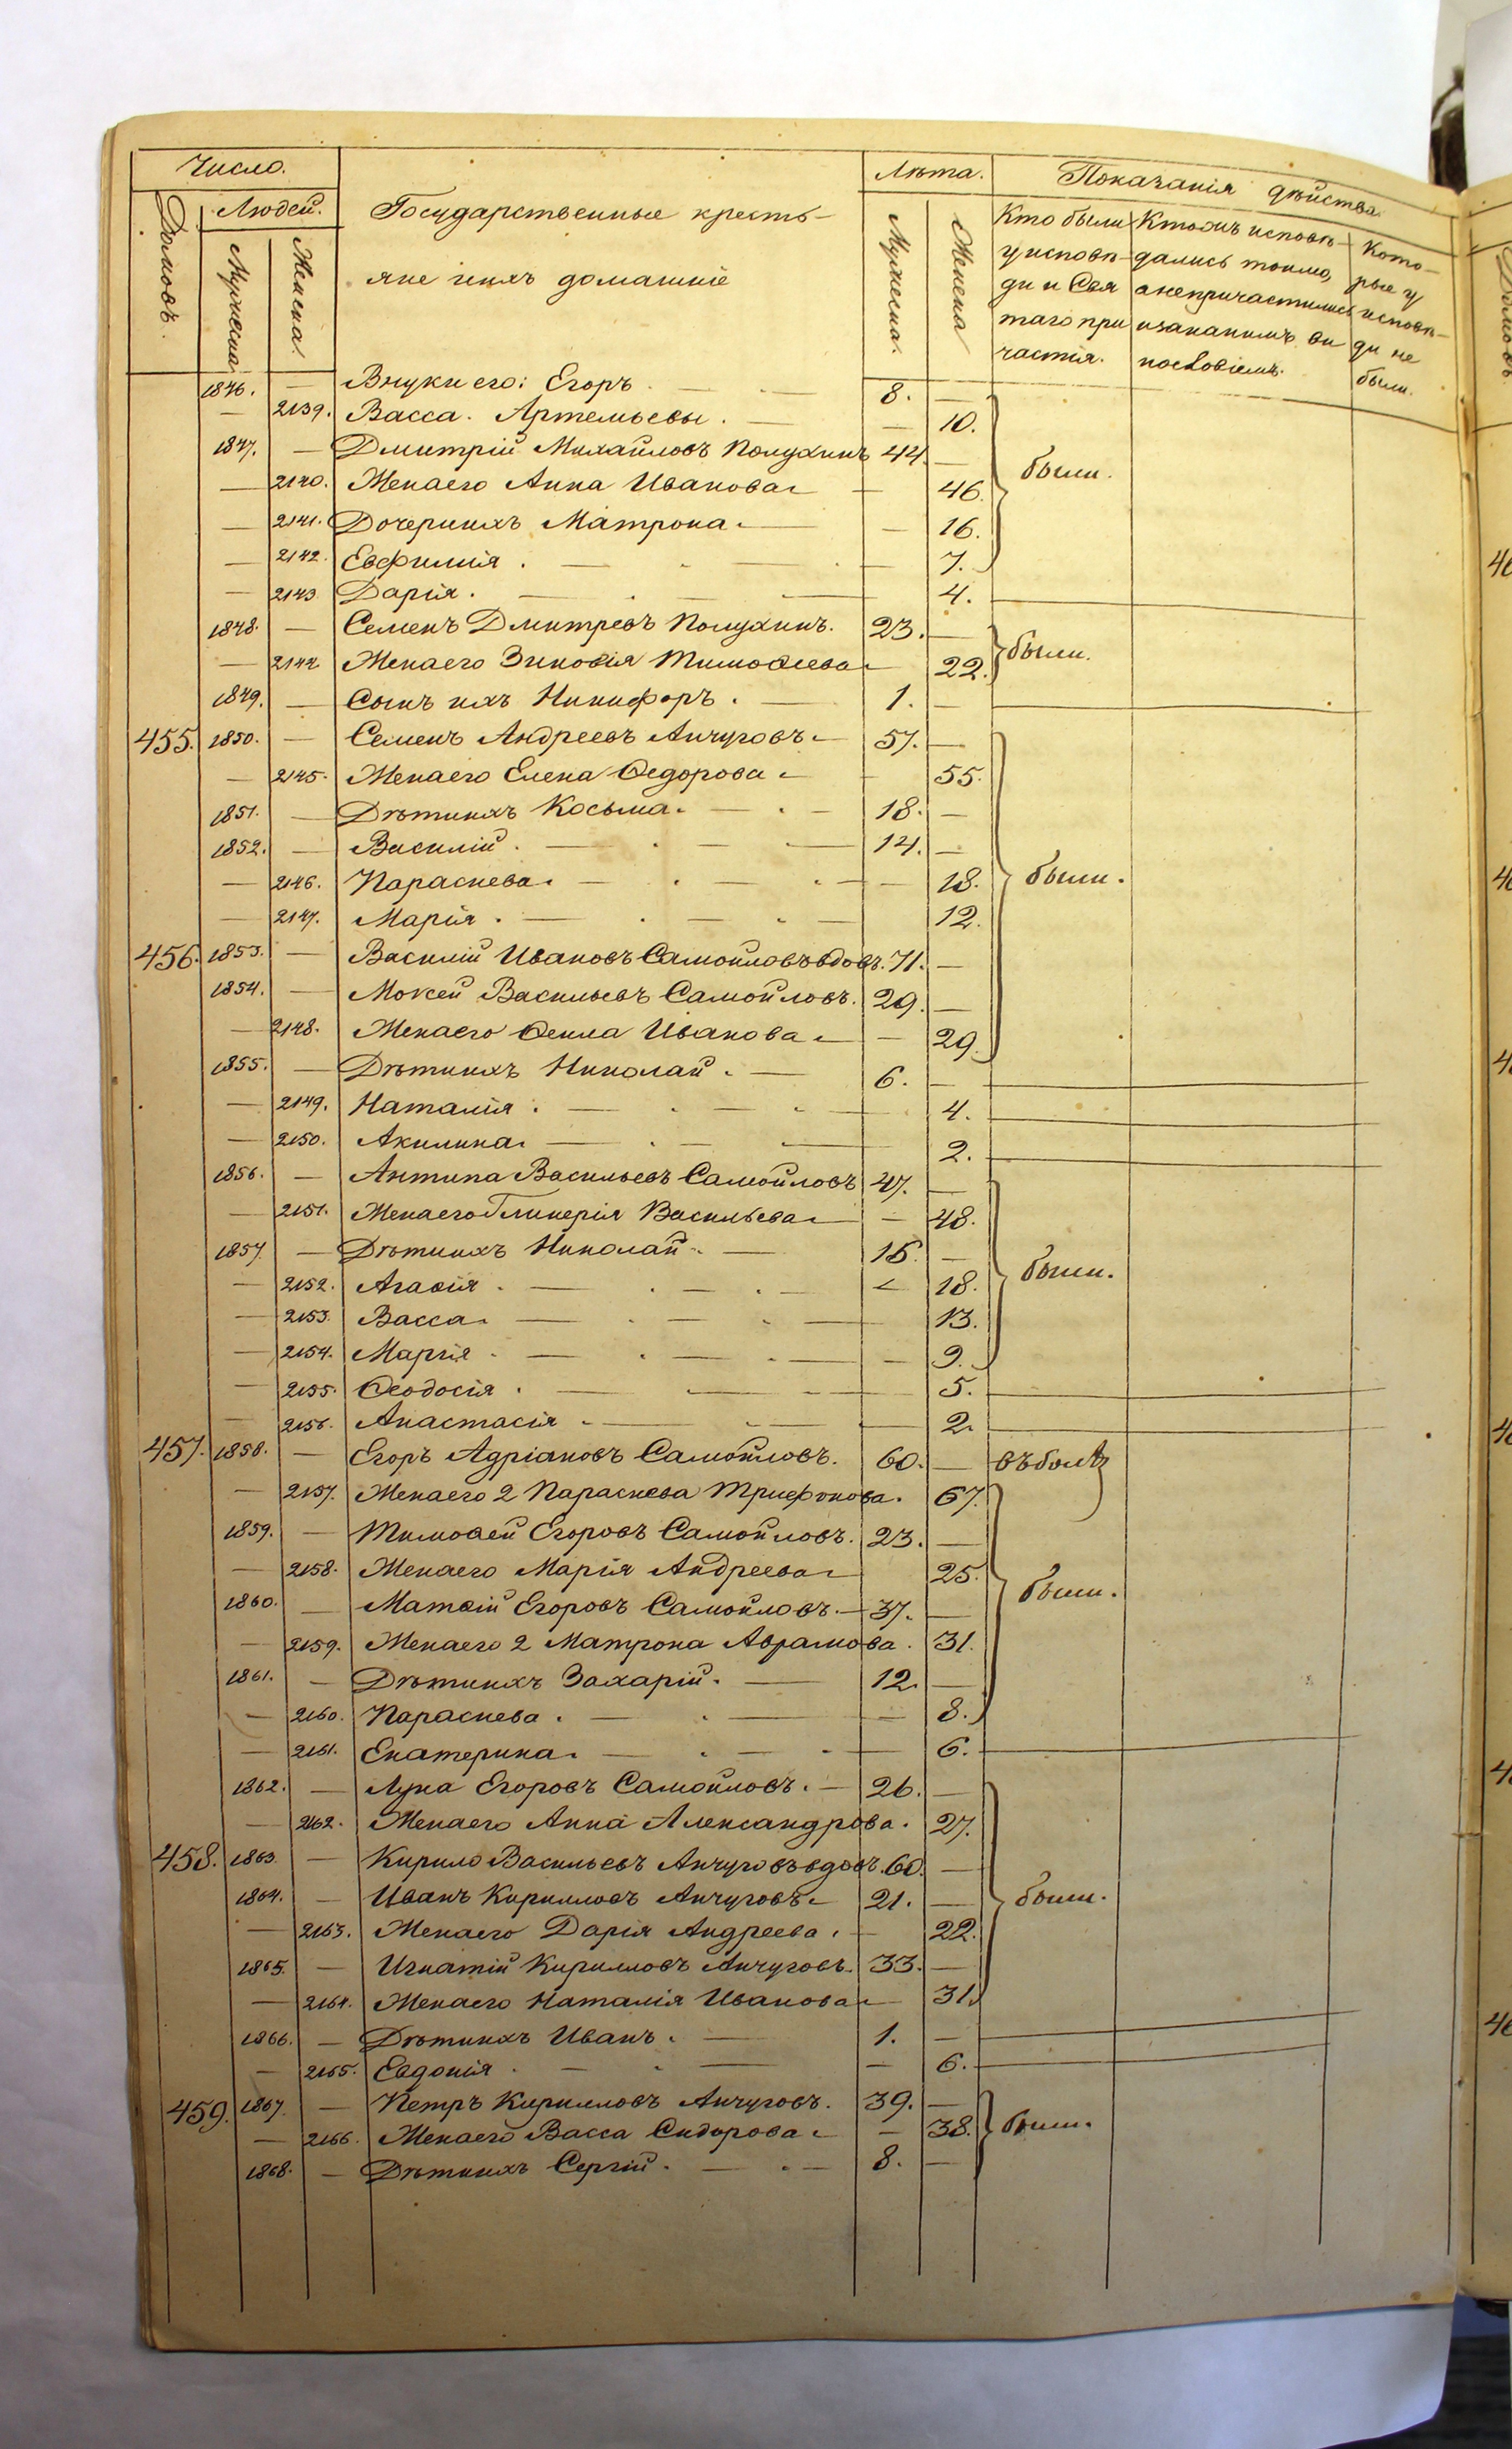 Число.
Лѣта.
Показанія дѣйства
Домовъ.
Людей.
Мужеска
Женска.
Государственные кресть-
яне иихъ домашніе
Мужеска.
Женска
Кто были
уисповѣ-
ди и Свя
таго при
частія.
Ктоихъ исповѣ-
дались токмо,
анепричастились
изакакимъ ви
нословіемъ.
Кото-
рые у
исповѣ-
ди не
были.
1846. — Внуки его: Егоръ. — 8. —
— 2139. Васса. Артемьевы. — — 10.
1847. — Дмитрій Михайловъ Полухинъ 44. — были.
— 2140. Женаего Анна Иванова — 46.
— 2141. Дочериихъ Матрона. — — 16.
— 2142. Евфимія. — — 7.
— 2143 Дарія. — — 4.
1848. — Семенъ Дмитревъ Полухинъ. 23. —
— 2144 Женаего Зиновія Тимоѳеева 22. были.
1849. — Сынъ ихъ Никифоръ. — 1. —
455. 1850. — Семенъ Андреевъ Анчуговъ 57. —
— 2145. Женаего Елена Ѳедорова — 55.
1851. — Дѣтиихъ Косьма. — 18. —
1852. — Василій. — 14. —
— 2146. Параскева. — — 18. были.
— 2147. Марія. — 12.
456. 1853. — Василій Ивановъ Самойловъ вдовъ. 71. —
1854. — Мокей Васильевъ Самойловъ. 29. —
— 2148. Женаего Ѳекла Иванова — 29.
1855. — Дѣтиихъ Николай. — 6. —
— 2149. Наталія. — 4.
— 2150. Акилина. — 2.
1856. — Антипа Васильевъ Самойловъ 47. —
— 2151. Женаего Гликерія Васильева — 48.
1857. — Дѣтиихъ Николай. — 15. —
— 2152. Агаѳія. — 18. были.
— 2153. Васса. — 13.
— 2154. Марія. — 9.
— 2155. Ѳеодосія. — 5.
— 2156. Анастасія — 2.
457. 1858. — Егоръ Адріановъ Самойловъ. 60. —
— 2157. Женаего 2 Параскева Трифонова. 67.
1859. — Тимоѳей Егоровъ Самойловъ. 23. —
— 2158. Женаего Марія Андреева 25. были.
1860. — Матѳій Егоровъ Самойловъ. — 37. —
— 2159. Женаего 2 Матрона Аврамова. 31.
1861. — Дѣтиихъ Захарій. — 12. —
— 2160. Параскева. — — 8.
— 2161. Екатерина. — 6.
1862. — Лука Егоровъ Самойловъ. — 26. —
— 2162. Женаего Анна Александрова. 27.
458. 1863. — Кирило Васильевъ Анчуговъ вдовъ. 60. —
1864. — Иванъ Кирилловъ Анчуговъ 21. — были.
— 2163. Женаего Дарія Андреева. 22.
1865. — Игнатій Кирилловъ Анчуговъ. 33. —
— 2164. Женаего Наталія Иванова 31.
1866. — Дѣтиихъ Иванъ. — 1. —
— 2165. Евдокія. — — 6.
459. 1867. — Петръ Кирилловъ Анчуговъ. 39. —
— 2166. Женаего Васса Сидорова — 38. были.
1868. — Дѣтиихъ Сергій. — 8. —